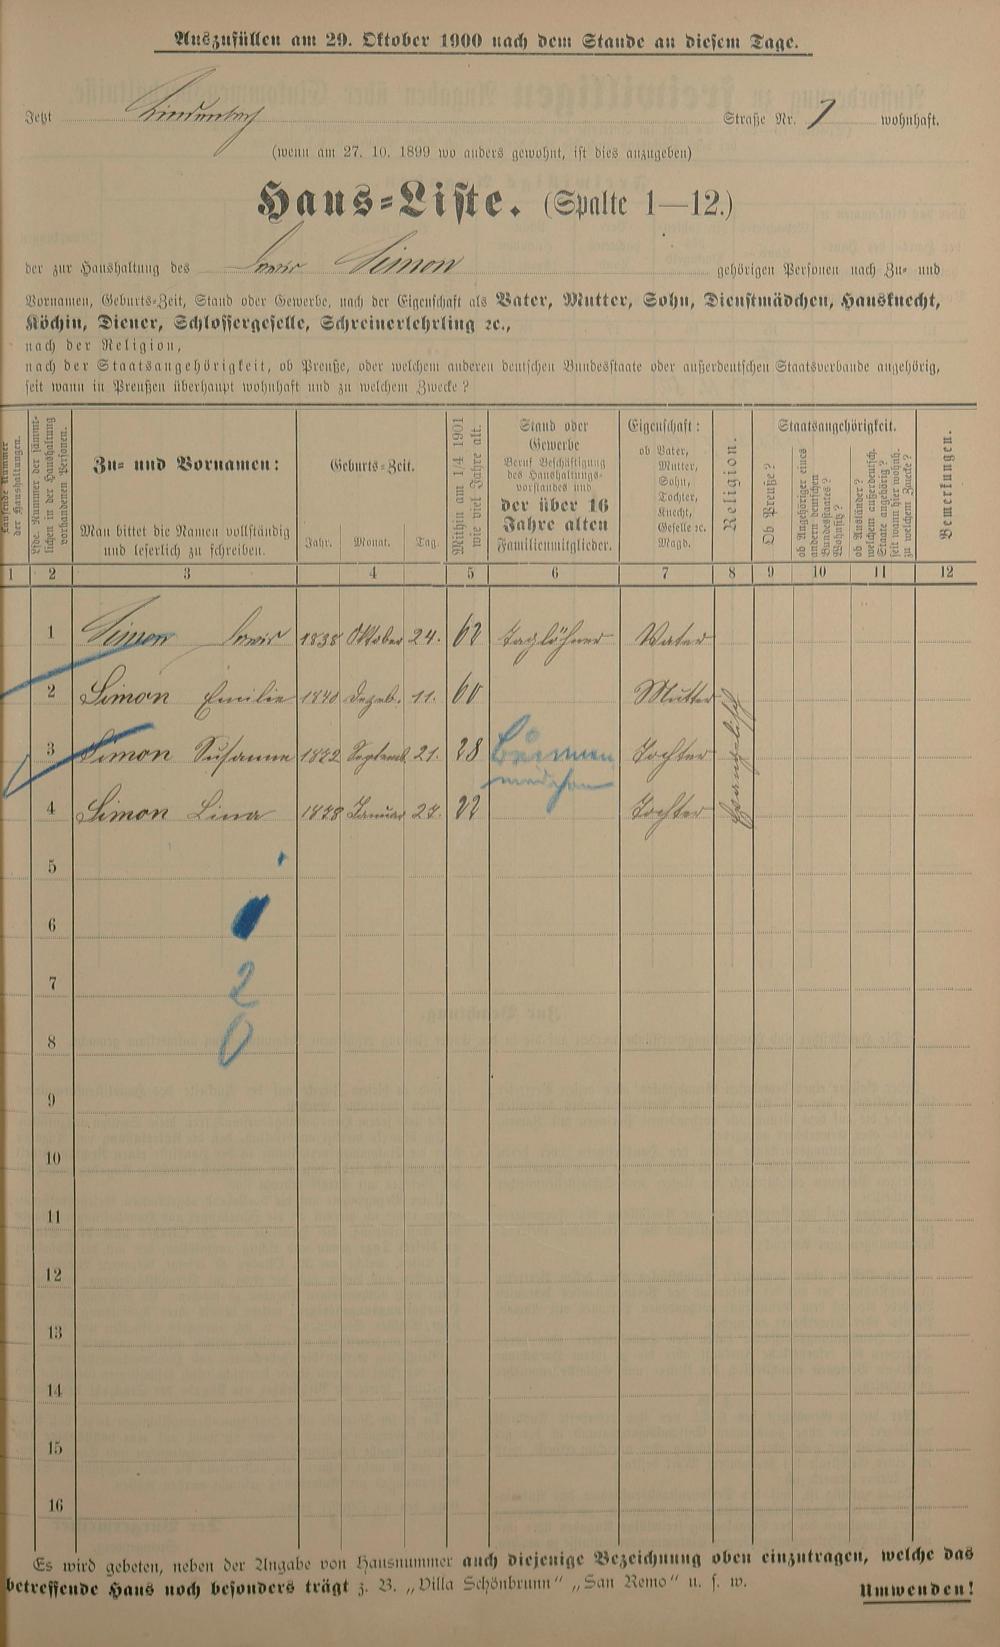 Auszufüllen am 29. Oktober 1900 nach dem Stande an diesem Tage.
Jetzt Lindenbach Straße Nr. 7 wohnhaft.
(wenn am 27. 10. 1899 wo anders gewohnt, ist dies anzugeben)
Haus-Liste. (Spalte 1—12.)
der zur Haushaltung des Louis Simon gehörigen Personen nach Zu- und
Vornamen, Geburts-Zeit, Stand oder Gewerbe, nach der Eigenschaft als Vater, Mutter, Sohn, Dienstmädchen, Hausknecht,
Köchin, Diener, Schlossergeselle, Schreinerlehrling ꝛc.,
nach der Religion,
nach der Staatsangehörigkeit, ob Preuße, oder welchem anderen deutschen Bundesstaate oder außerdeutschen Staatsverbande angehörig,
seit wann in Preußen überhaupt wohnhaft und zu welchem Zwecke?
Laufende Nummer
der Haushaltungen.
Lfde. Nummer der sämmt-
lichen in der Haushaltung
vorhandenen Personen.
Zu- und Vornamen:
Man bittet die Namen vollständig
und leserlich zu schreiben.
Geburts-Zeit.
Jahr. Monat. Tag.
Mithin am 1/4 1901
wie viel Jahre alt.
Stand oder
Gewerbe
Beruf Beschäftigung
des Haushaltungs-
vorstandes und
der über 16
Jahre alten
Familienmitglieder.
Eigenschaft:
ob Vater,
Mutter,
Sohn,
Tochter,
Knecht,
Geselle ꝛc.
Magd.
Religion.
Staatsangehörigkeit.
Ob Preuße?
ob Angehöriger eines
andern deutschen
Bundesstaates?
Wohnsitz?
ob Ausländer?
welchem außerdeutsch.
Staate angehörig?
seit wann hier wohnh.
zu welchem Zwecke?
Bemerkungen.
1 2 3 4 5 6 7 8 9 10 11 12
1 Simon Louis 1838 Oktober 24. 62 Taglöhner Vater
2 Simon Emilie 1840 Dezeb. 11. 60 Mutter
3 Simon Susanne 1872 Septemb. 21. 28 Brunnen Tochter
mädchen
4 Simon Lina 1878 Januar 27. 22 Tochter
Evangelisch
5
6
7 2
8 0
9
10
11
12
13
14
15
16
Es wird gebeten, neben der Angabe von Hausnummer auch diejenige Bezeichnung oben einzutragen, welche das
betreffende Haus noch besonders trägt z. B. „Villa Schönbrunn“ „San Remo“ u. s. w.
Umwenden!